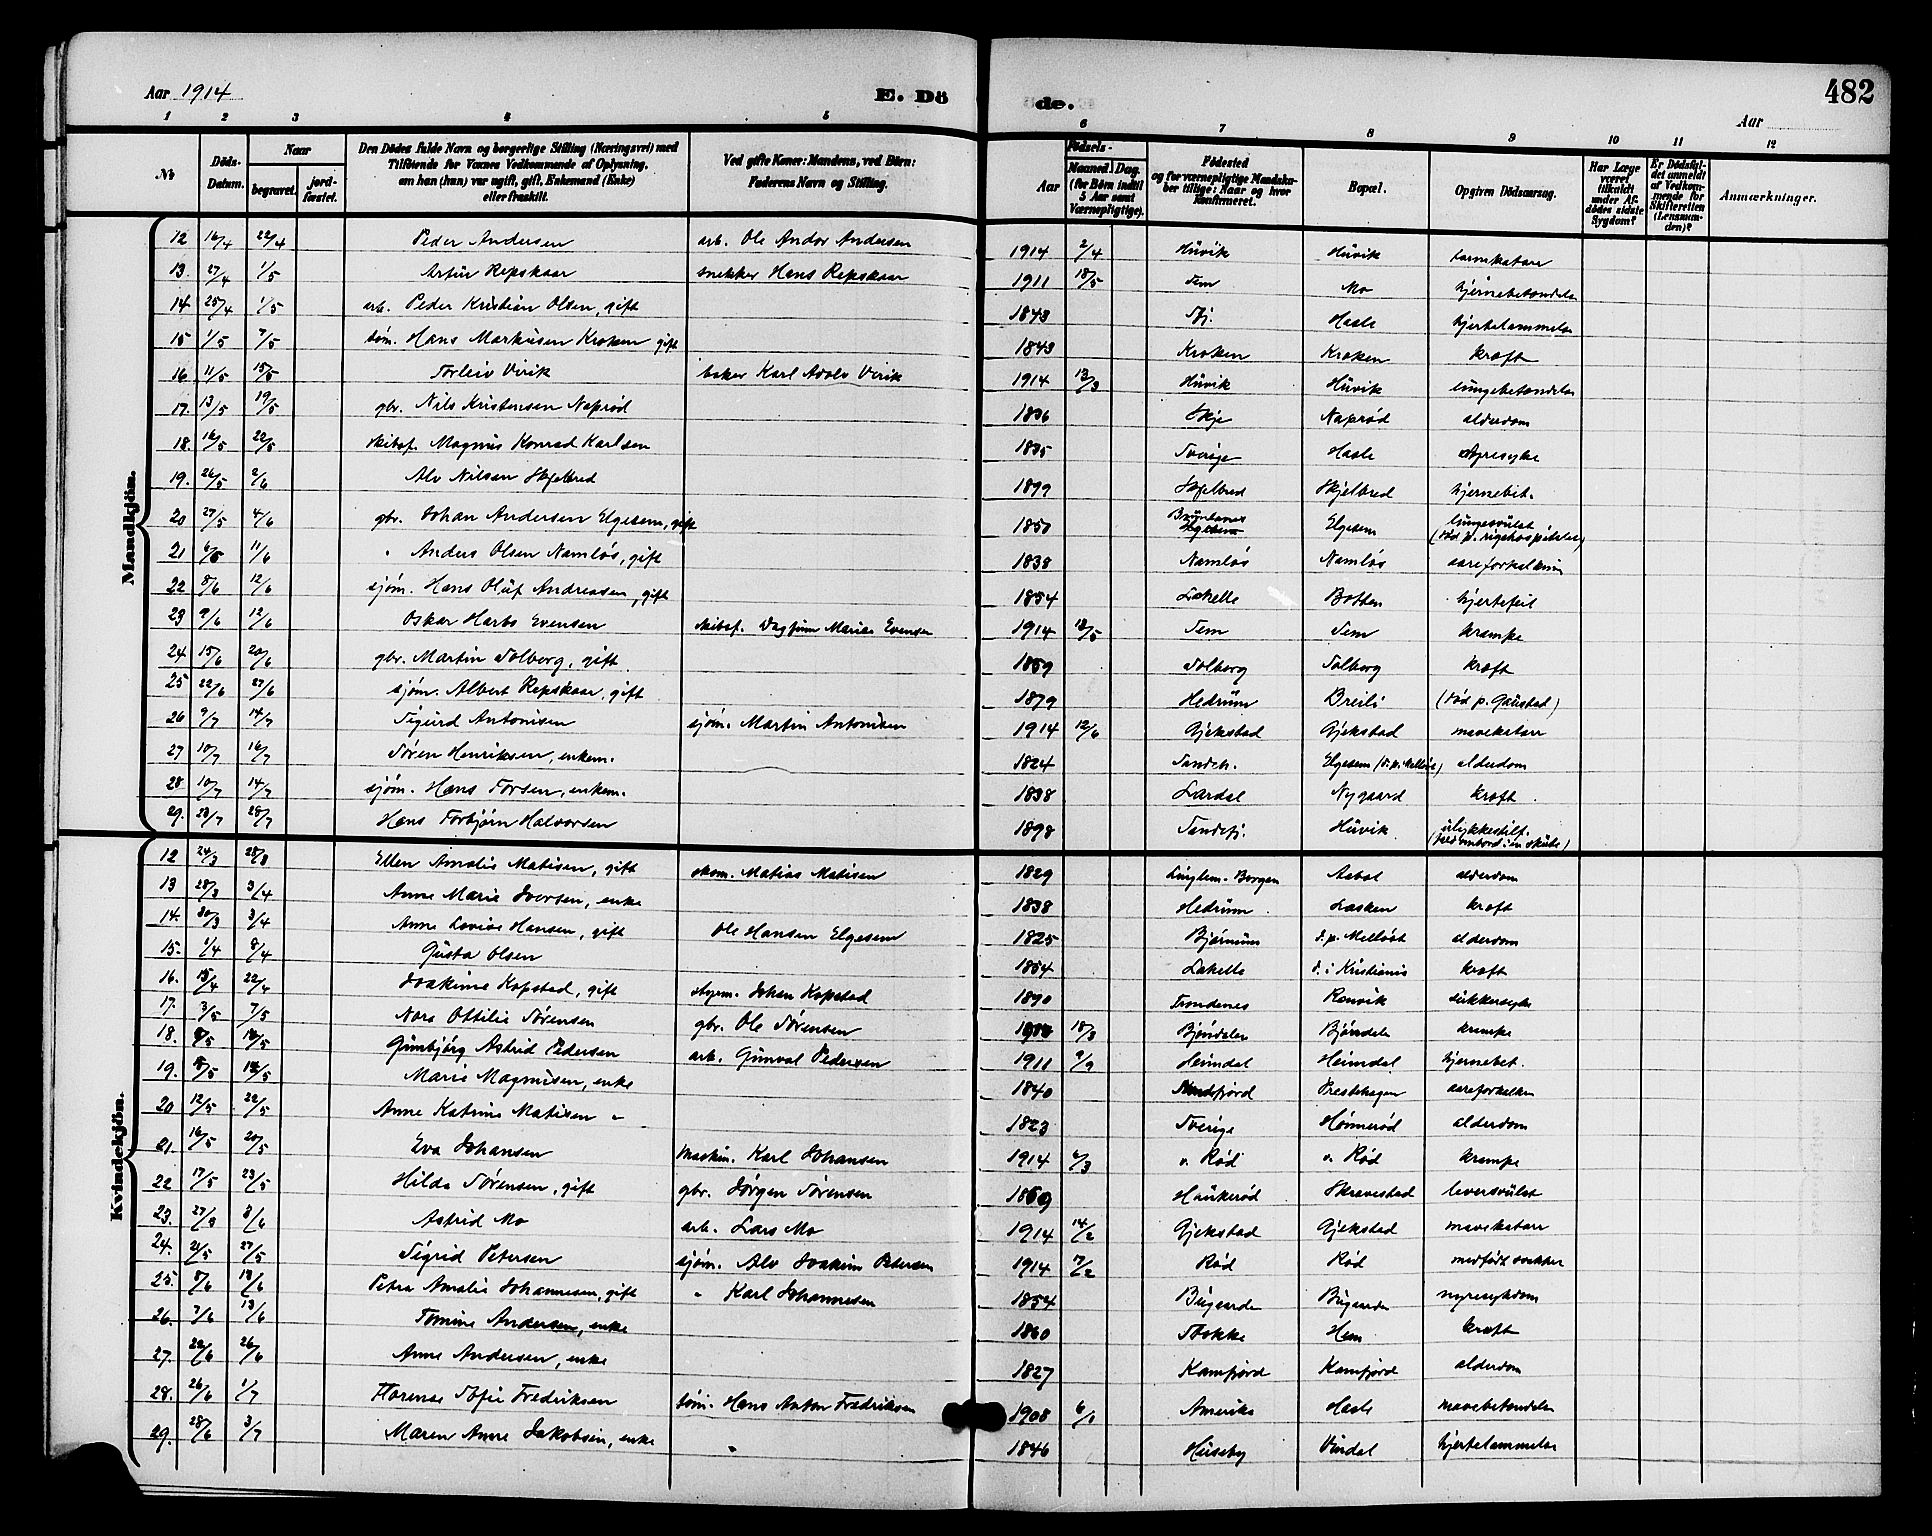 Aar 1914
E. Dö
de.
Aar
482
1 2 3 4 5 6 7 8 9 10 11 12
No
Döds-Datum.
Naar
begravet.
jord-fæstet.
Den Dödes fulde Navn og borgerlige Stilling (Næringsvei) med Tilföiende for Voxnes Vedkommende af Oplysning, om han (hun) var ugift, gift, Enkemand (Enke) eller fraskilt.
Ved gifte Koner: Mandens, ved Börn: Faderens Navn og Stilling.
Födsels-
Aar
Maaned. Dag. (for Börn indtil 5 Aar samt Værnepligtige).
Födested og for værnepligtige Mandskaber tillige: Naar og hvor konfirmeret.
Bopæl.
Opgiven Dödsaarsag.
Har Læge været tilkaldt under Afdödes sidste Sygdom?
Er Dödsfaldet anmeldt af Vedkommende for Skifteretten (Lensmanden)?
Anmærkninger.
Mandkjön.
12 16/4 22/4 Peder Andersen arb. Ole Andor Andersen 1914 2/4 Huvik Huvik tarmkatarr
13. 27/4 1/5 Artur Repskaar snekker Hans Repskaar 1911 18/5 Fem Mo hjernebetændelse
14 25/4 1/5 arb. Peder Kristian Olsen, gift 1843 Hasle hjertelammelse
15 1/5 7/5 tøm. Hans Markusen Kroken gift 1843 Kroken Kroken kræft
16 11/5 15/5 Torleiv Virik baker Karl Adolv Virik 1914 13/3 Huvik Huvik lungebetændelse
17. 13/5 19/5 gbr. Nils Kristensen Naprød 1836 Skje Naprød alderdom
18. 16/5 22/5 skibsf. Magnus Konrad Karlsen 1835 Sverige Hasle nyresyke
19. 26/5 2/6 Alv Nilsen Skjelbred 1899 Skjelbred Skjelbred hjernebet.
20 27/5 4/6 gbr. Johan Andersen Elgesem, gift 1850 Elgesem lungesvulst
(død p. rigshospitalet)
21 6/6 11/6 " Anders Olsen Namløs, gift 1838 Namløs Namløs aareforkalkning
22 8/6 12/6 sjøm. Hans Oluf Andreasen, gift 1854 Lahelle Botten hjertefeil
23 9/6 12/6 Oskar Harbo Evensen skibsf. Dagfinn Marius Evensen 1914 13/5 Fem Fem krampe
24 15/6 20/6 gbr. Martin Solberg, gift 1859 Solberg Solberg kræft
25 22/6 27/6 sjøm. Albert Repskaar, gift 1879 Hedrum Breili (død p. Gaustad)
26 9/7 14/7 Sigurd Antonisen sjøm. Martin Antonisen 1914 12/6 Gjekstad Gjekstad mavekatarr
27 10/7 16/7 Søren Henriksen, enkem. 1824 Sandeh. Elgesem (d. p. Melløst) alderdom
28 10/7 14/7 sjøm. Hans Torsen, enkem. 1838 Lardal Nygaard kræft
29. 23/7 28/7 Hans Torbjørn Halvorsen 1898 Sandefj. Huvik ulykkestilf.
Kvindekjön.
12 24/3 28/3 Ellen Amalie Matisen, gift skom. Matias Matisen 1829 alderdom
13 28/3 3/4 Anne Marie Iversen, enke 1838 Hedrum Lasken kræft
14. 30/3 3/4 Anne Lovise Hansen, gift Ole Hansen Elgesem 1825 Bjørnum d. p. Melløst alderdom
15. 1/4 8/4 Gusta Olsen 1854 Lahelle d. i Kristiania kræft
16. 15/4 22/4 Joakime Kopstad, gift styrm. Johan Kopstad 1890 Trondenes Ranvik sukkersyke
17. 3/5 7/5 Nora Ottilie Sørensen gbr. Ole Sørensen 1914 18/3 Bjøndalen Bjørndalen krampe
18. 8/5 Gunbjørg Astrid Pedersen arb. Gunval Pedersen 1911 9/9 Heimdal Heimdal hjernebet.
19. 8/5 Marie Magnusen, enke 1840 Prestehagen aareforkalkn
20 12/5 22/5 Anne Katrine Matisen " 1823 Sverige Hønnerød alderdom
21. 16/5 20/5 Eva Johansen maskin. Karl Johansen 1914 6/3 v. Rød v. Rød krampe
22 17/5 23/5 Hilda Sørensen, gift gbr. Jørgen Sørensen 1869 Haukerød Skravestad leversvulst
23. 27/5 3/6 Astrid Mo arb. Lars Mo 1914 14/2 Gjekstad Gjekstad mavekatarr
24. 21/5 27/5 Sigrid Petersen sjøm. Alv Joakim Petersen 1914 7/2 Rød Rød medfødt svakhet
25. 8/6 13/6 Petra Amalie Johannesen, gift " Karl Johannesen 1854 Bugaarden Bugaarden nyresykdom
26. 7/6 13/6 Tomine Andersen, enke 1860 Stokke Hem kræft
27. 22/6 26/6 Anne Andersen, enke 1827 Kamfjord Kamfjord alderdom
28. 26/6 1/7 Florense Sofie Fredriksen tøm. Hans Anton Fredriksen 1908 6/1 Amerika Hasle mavebetændelse
29. 28/6 3/7 Maren Anne Jakobsen, enke " 1846 Huseby Vindal hjertelammelse